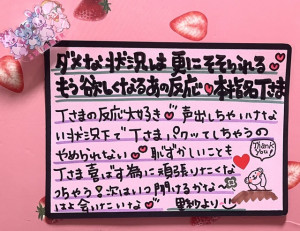 ダメな状況は更にそそられる
もう欲しくなるあの反応♥本指名Tさま
Tさまの反応大好き♥声出しちゃいけな
い状況下でTさまピクッてしちゃうの
やめられない♥恥ずかしいことも
Tさま喜ばす為に頑張りたくな
っちゃう?次はいつ開けるかな〜
はよ会いたいな♡ 里紗より
Thank you!